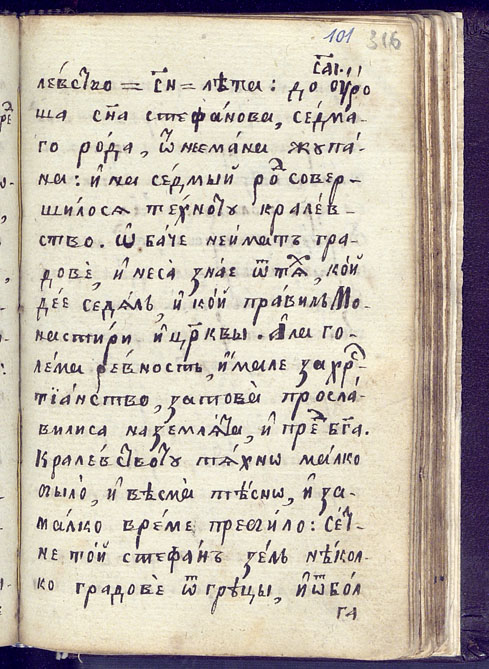 101 316
левство = с҃н = лѣта: до оуро
ша сн҃а стефа́нова, се́дма-
го ро́да, ѿ неема́на жупа́-
на: и҆ на се́дмый ро́д совер-
шилося те́хното кралѐв-
ство. ѡ҆ ба́че не и́матъ гра-
довѐ, и҆ не са̀ зна́е ѿ тя́х, ко́й
дѐе седя́лъ, и҆ ко́й пра́вилъ мо-
настѝри и҆ цр҃квы. а҆ла го-
лѐма рѐвность, и҆мале за хрс-
тїа́нство, за това̀ просла́-
вилиса на земля́та, и҆ пред бг҃а.
Кралѐвството тя́хно ма́лко
было̀, и҆ вѣсма̀ тѣ́сно, и҆ за-
ма́лко врѐме пребило:
не то́й стефа́нъ зе́лъ нѣ́кол-
ко градовѐ ѿ грѐцы, и҆ ѿ бо́л
га